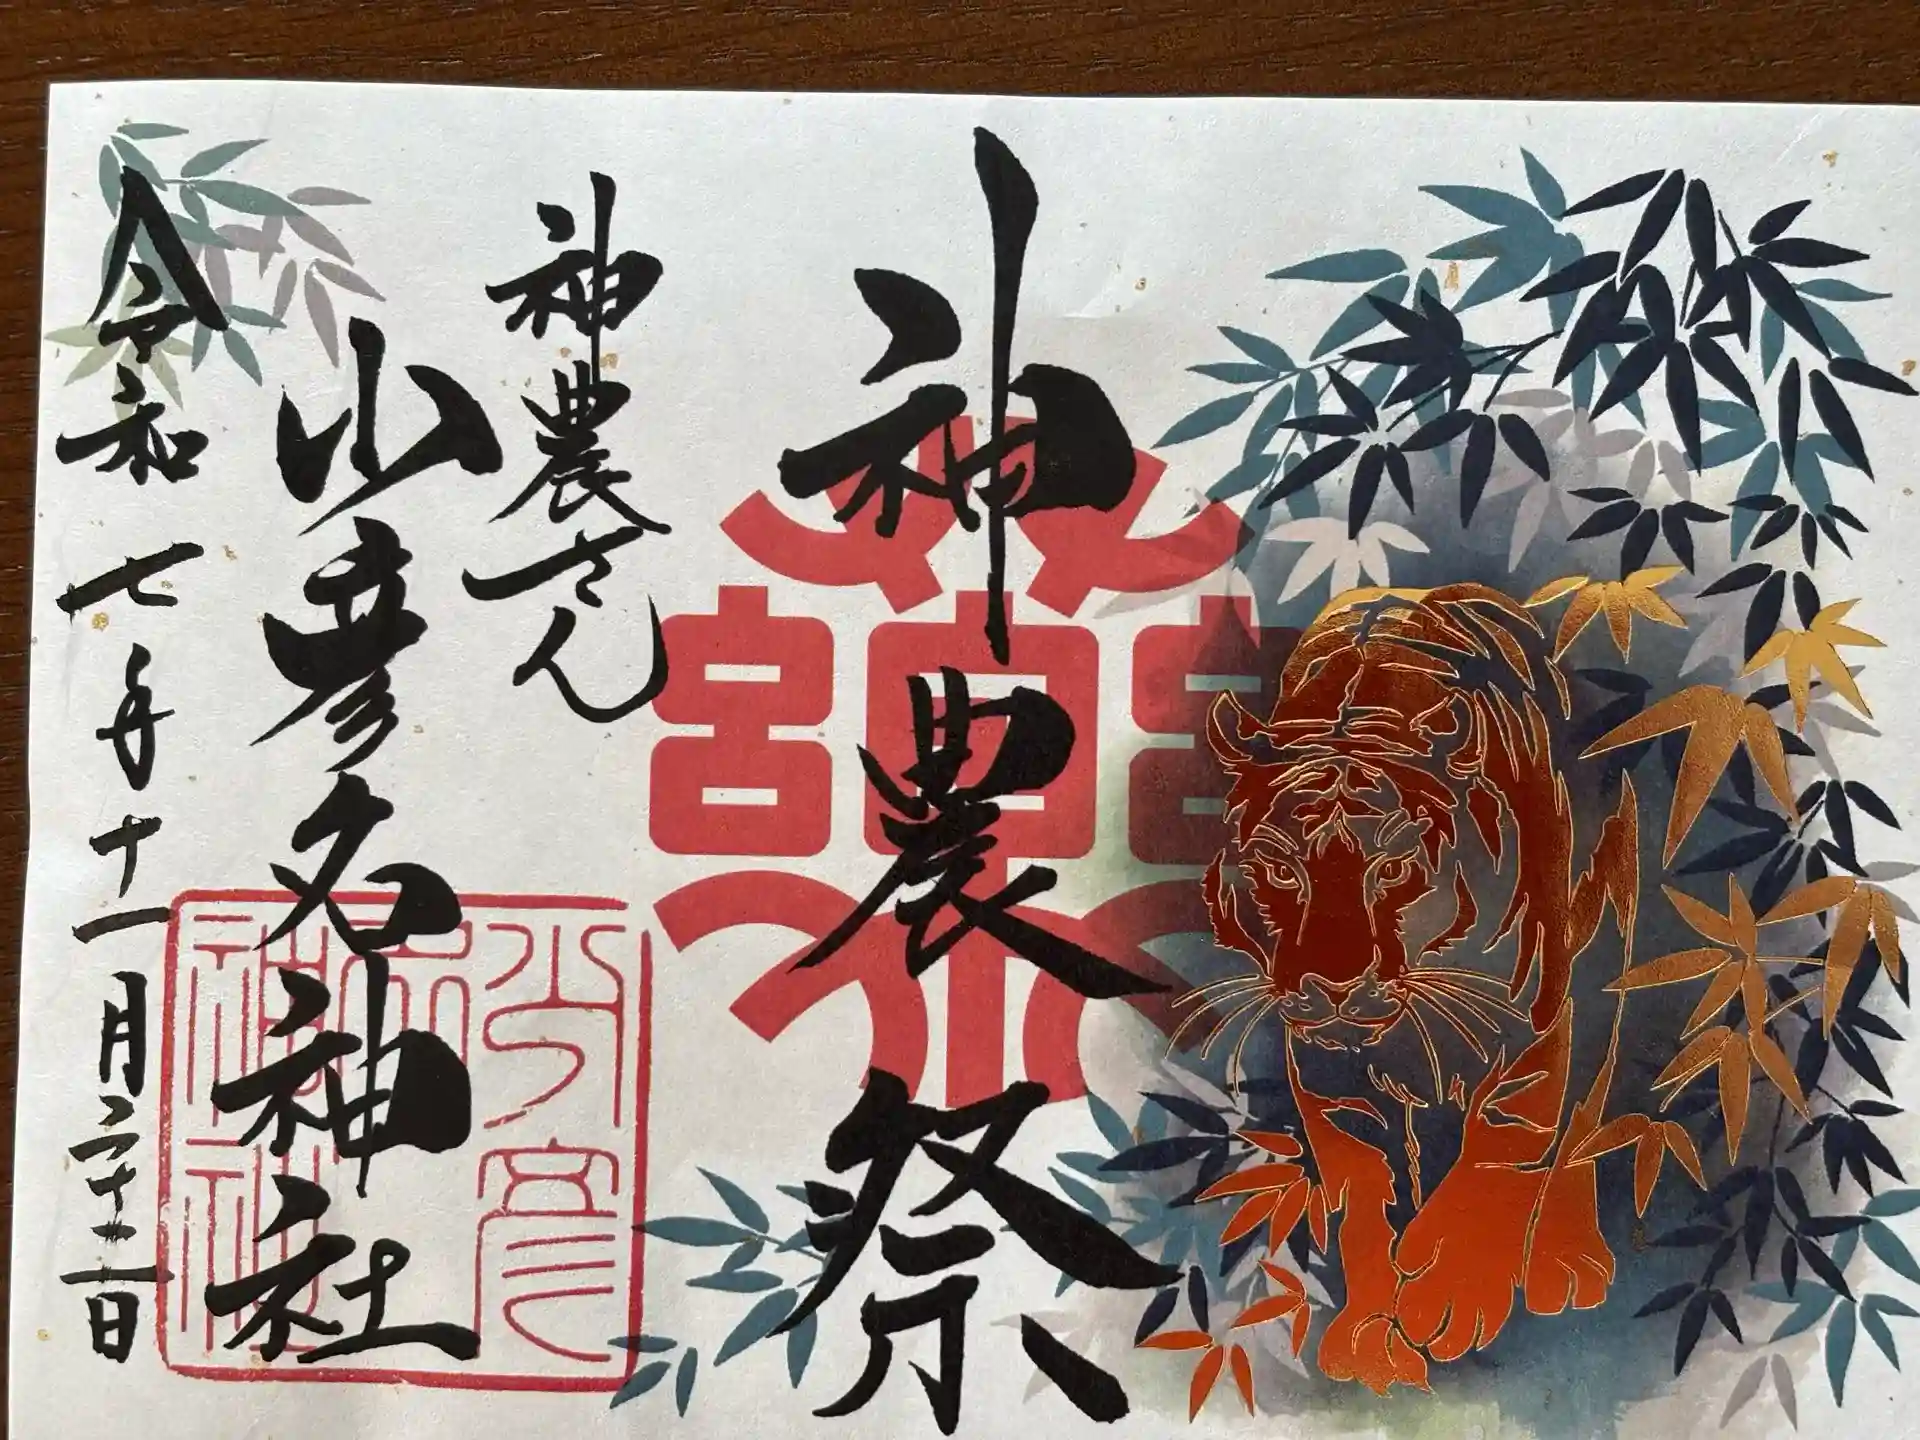 神農祭
神農さん
少彦名神社
令和七年十一月二十二日
少彦
名
神社